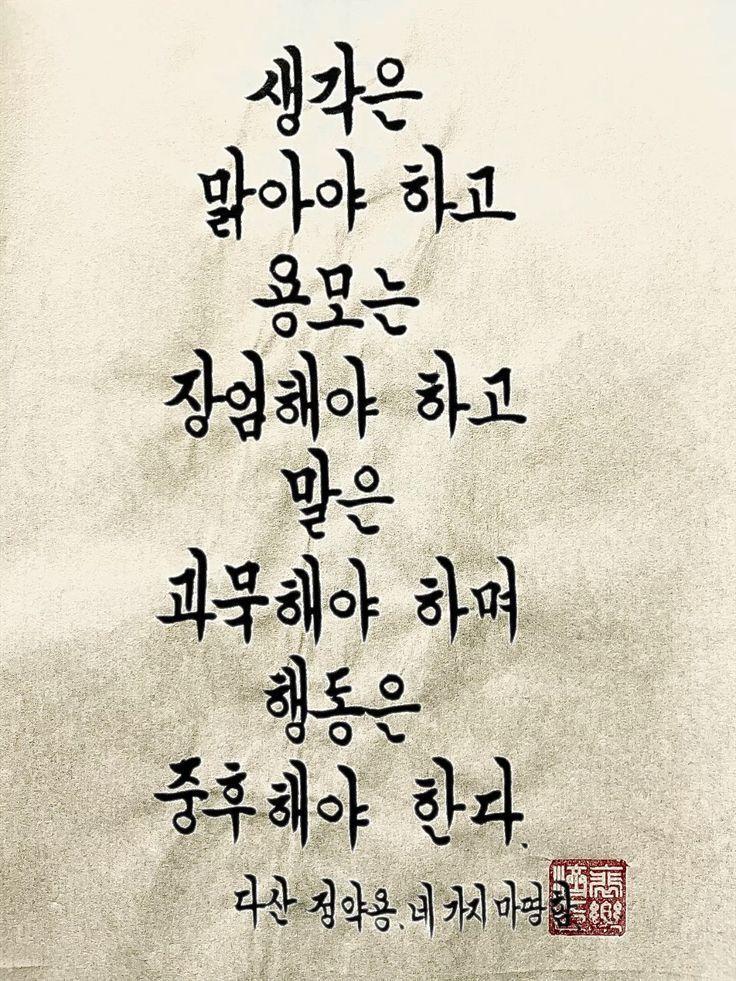 생각은
맑아야 하고
용모는
장엄해야 하고
말은
과묵해야 하며
행동은
중후해야 한다.
다산 정약용. 네 가지 마땅함.